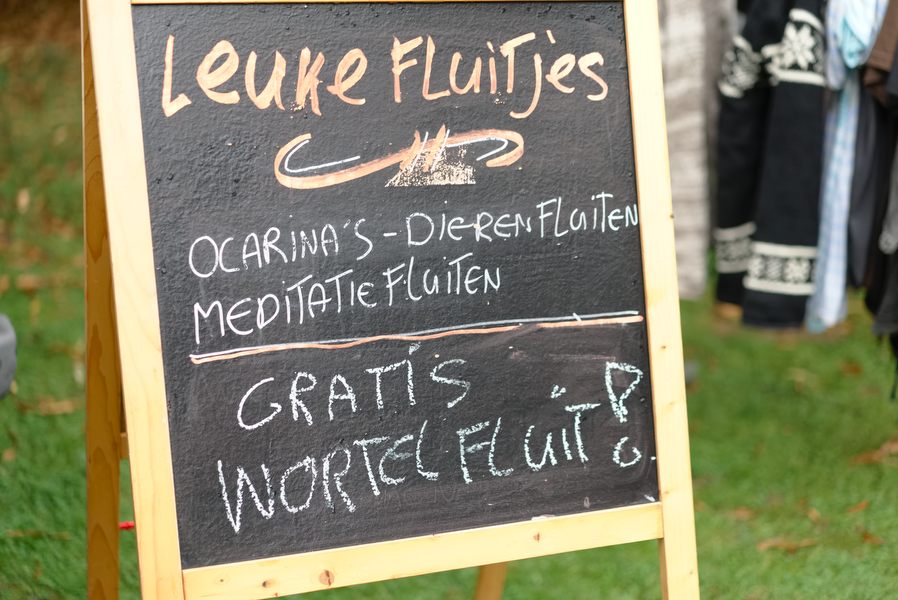 Leuke Fluitjès
OCARINA'S - DIERENFLUITEN
MEDITATIEFLUITEN
GRATIS
WORTELFLUIT!